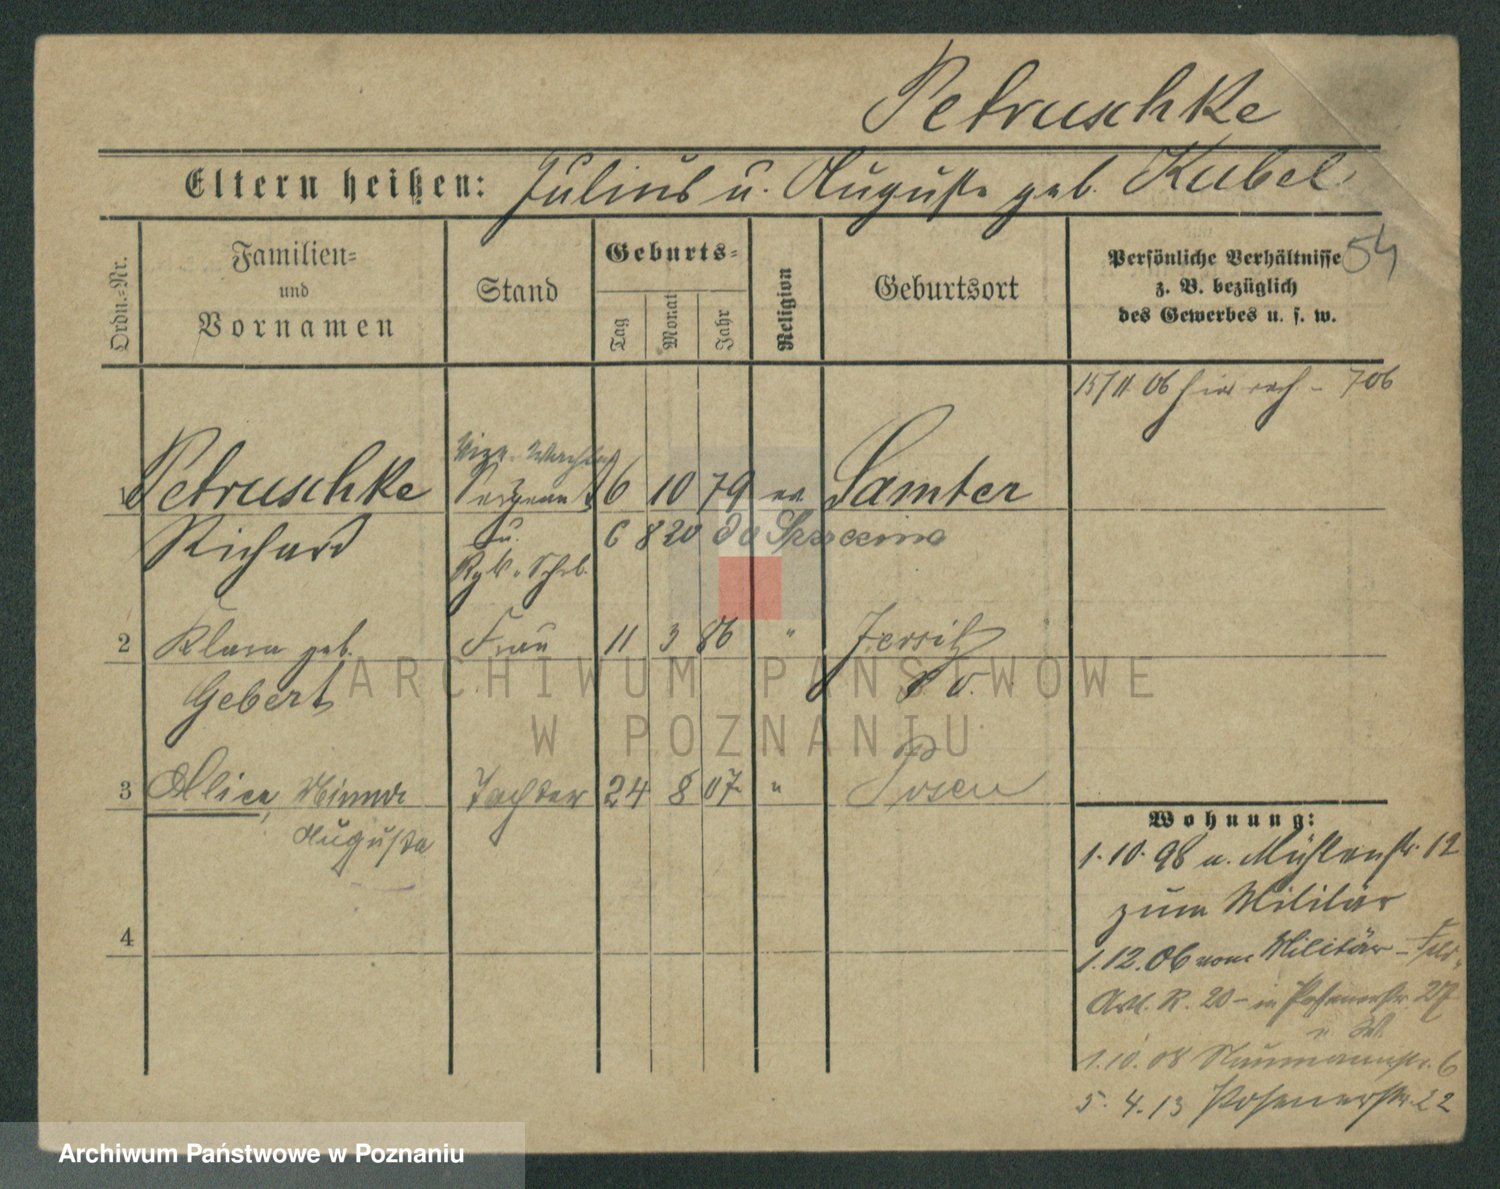 Petruschke
Eltern heißen: Julius u. Auguste geb. Kubel
54
Ordn.-Nr.
Familien- und Vornamen
Stand
Geburts-
Tag
Monat
Jahr
Religion
Geburtsort
Persönliche Verhältnisse
z. B. bezüglich
des Gewerbes u. s. w.
15/11 06 hier - 706
Vize-Wachtm.
1 Petruschke Sergeant 6 10 79 ev Samter
Richard u. 6 8 20 do Szczecina
2 Klara geb. Frau 11 3 86 " Jersitz
Gebert
3 Alice, Minna Tochter 24 8 07 " Posen
Auguste
4
Wohnung:
1.10.98 a. Mühlenstr. 12
zum Militär
1.12.06 vom Militär - Feld-
Art. R. 20 - in Posenerstr. 27
1.10.08 Naumannstr. 6
5.4.13 Posenerstr. 22
ARCHIWUM PAŃSTWOWE
W POZNANIU
Archiwum Państwowe w Poznaniu